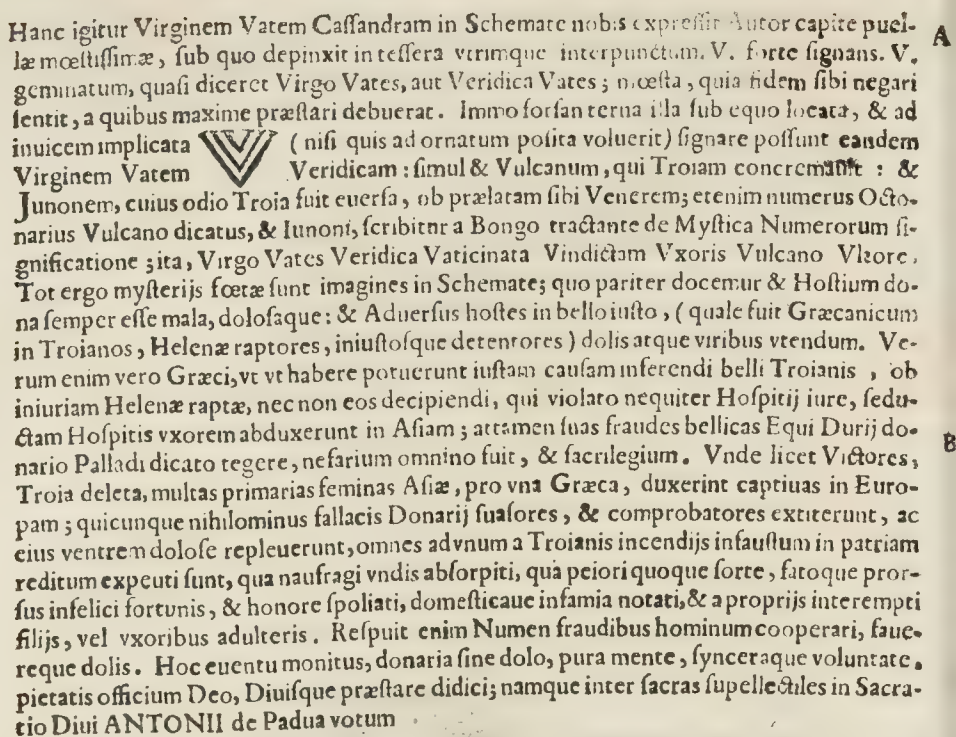 Hanc igitur Virginem Vatem Caſſandram in Schemate nobis expreſſit Autor capite puel- A
læ mœſtiſſimæ, ſub quo depinxit in teſſera vtrimque interpunctum. V. forte ſignans. V.
geminatum, quaſi diceret Virgo Vates, aut Veridica Vates; mœſta, quia fidem ſibi negari
ſentit, a quibus maxime præſtari debuerat. Immo forſan terna illa ſub equo locata, & ad
inuicem implicata VVV ( niſi quis ad ornatum poſita voluerit) ſignare poſſunt eandem
Virginem Vatem Veridicam: ſimul & Vulcanum, qui Troiam : &
Junonem, cuius odio Troia fuit euerſa, ob prælatam ſibi Venerem; etenim numerus Octo-
narius Vulcano dicatus, & Iunoni, ſcribitur a Bongo tractante de Myſtica Numerorum ſi-
gnificatione; ita, Virgo Vates Veridica Vaticinata Vindictam Vxoris Vulcano Vltore.
Tot ergo myſterijs fœtæ ſunt imagines in Schemate; quo pariter docemur & Hoſtium do-
na ſemper eſſe mala, doloſaque: & Aduerſus hoſtes in bello iuſto, ( quale fuit Græcanicum
in Troianos, Helenæ raptores, iniuſtoſque detentores ) dolis atque viribus vtendum. Ve-
rum enim vero Græci, vt vt habere potuerunt iuſtam cauſam inferendi belli Troianis , ob
iniuriam Helenæ raptæ, nec non eos decipiendi, qui violato nequiter Hoſpitij iure, ſedu-
ctam Hoſpitis vxorem abduxerunt in Aſiam; attamen ſuas fraudes bellicas Equi Durij do- B
nario Palladi dicato tegere, nefarium omnino fuit, & ſacrilegium. Vnde licet Victores,
Troia deleta, multas primarias feminas Aſiæ, pro vna Græca, duxerint captiuas in Euro-
pam; quicunque nihilominus fallacis Donarij ſuaſores, & comprobatores extiterunt, ac
eius ventrem doloſe repleuerunt, omnes ad vnum a Troianis incendijs infauſtum in patriam
reditum experti ſunt, qua naufragi vndis abſorpti, qua peiori quoque ſorte, fatoque pror-
ſus infelici fortunis, & honore ſpoliati, domeſticaue infamia notati, & a proprijs interempti
filijs, vel vxoribus adulteris. Reſpuit enim Numen fraudibus hominum cooperari, faue-
reque dolis. Hoc euentu monitus, donaria ſine dolo, pura mente, ſynceraque voluntate.
pietatis officium Deo, Diuiſque præſtare didici; namque inter ſacras ſupellectiles in Sacra-
tio Diui ANTONII de Padua votum